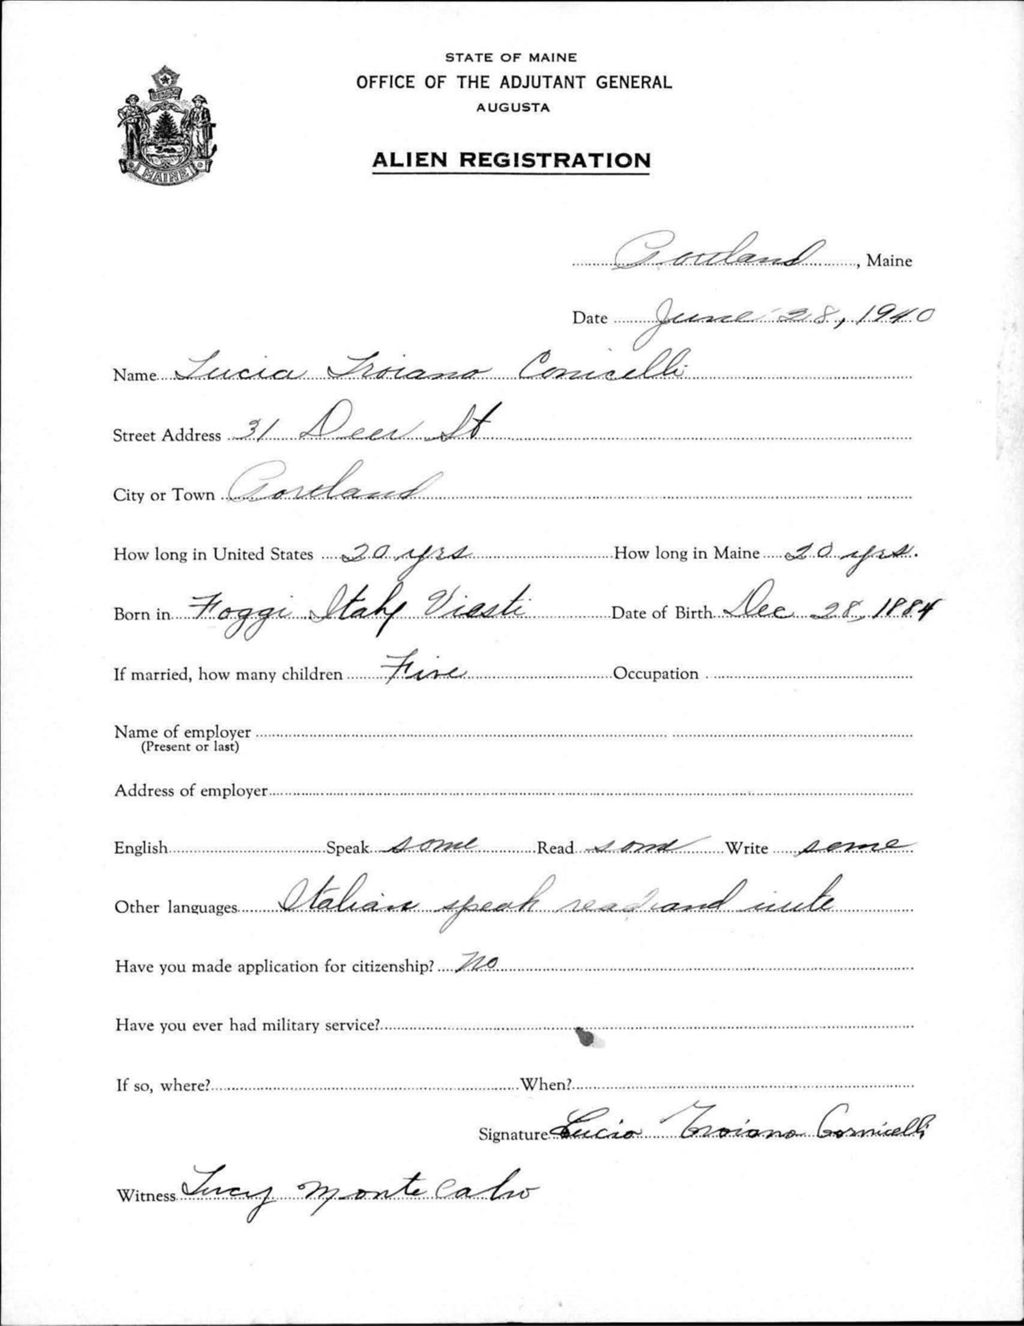 STATE OF MAINE
OFFICE OF THE ADJUTANT GENERAL
AUGUSTA
ALIEN REGISTRATION
MAINE
Portland, Maine
Date June 28, 1940
Name Lucia Troiano Conicelli
Street Address 31 Deer St
City or Town Portland
How long in United States 20 yrs How long in Maine 20 yrs.
Born in Foggi Italy Viesti Date of Birth Dec 28, 1884
If married, how many children Five Occupation
Name of employer
(Present or last)
Address of employer
English Speak some Read some Write some
Other languages Italian speak read and write
Have you made application for citizenship? No
Have you ever had military service?
If so, where? When?
Signature Lucia Troiano Cornicelli
Witness Lucy Monte Calvo